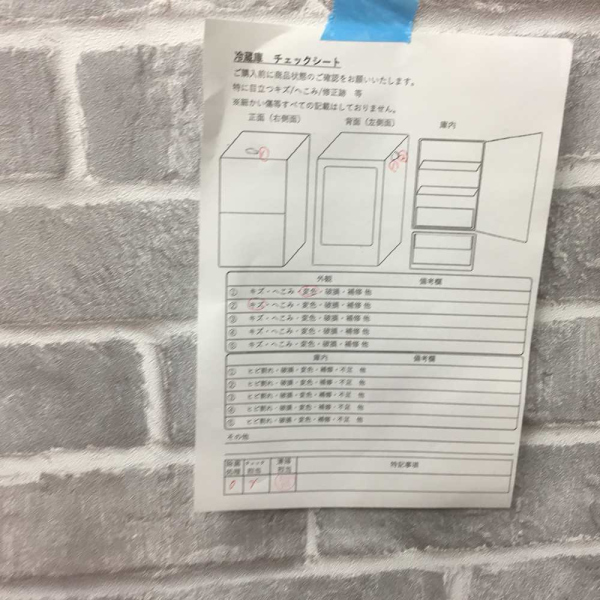 冷蔵庫 チェックシート
ご購入前に商品状態のご確認をお願いいたします。
特に目立つキズ/へこみ/修正跡 等
※細かい傷等すべての記載はしておりません。
正面(右側面) 背面(左側面) 庫内
外観 備考欄
① キズ・へこみ・変色・破損・補修 他
② キズ・へこみ・変色・破損・補修 他
③ キズ・へこみ・変色・破損・補修 他
④ キズ・へこみ・変色・破損・補修 他
⑤ キズ・へこみ・変色・破損・補修 他
庫内 備考欄
① ヒビ割れ・破損・変色・補修・不足 他
② ヒビ割れ・破損・変色・補修・不足 他
③ ヒビ割れ・破損・変色・補修・不足 他
④ ヒビ割れ・破損・変色・補修・不足 他
⑤ ヒビ割れ・破損・変色・補修・不足 他
その他
除菌 チェック 清掃 特記事項
処理 担当 担当